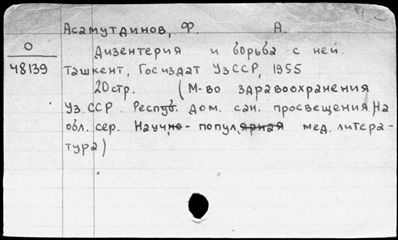 Асамутдинов, Ф. А.
О
48139
Дизентерия и борьба с ней.
Ташкент, Госиздат УзССР, 1955
20стр. (М-во здравоохранения
Уз.ССР. Респуб. дом. сан. просвещения) На
обл. сер. Научно-популярная мед. литера-
тура)